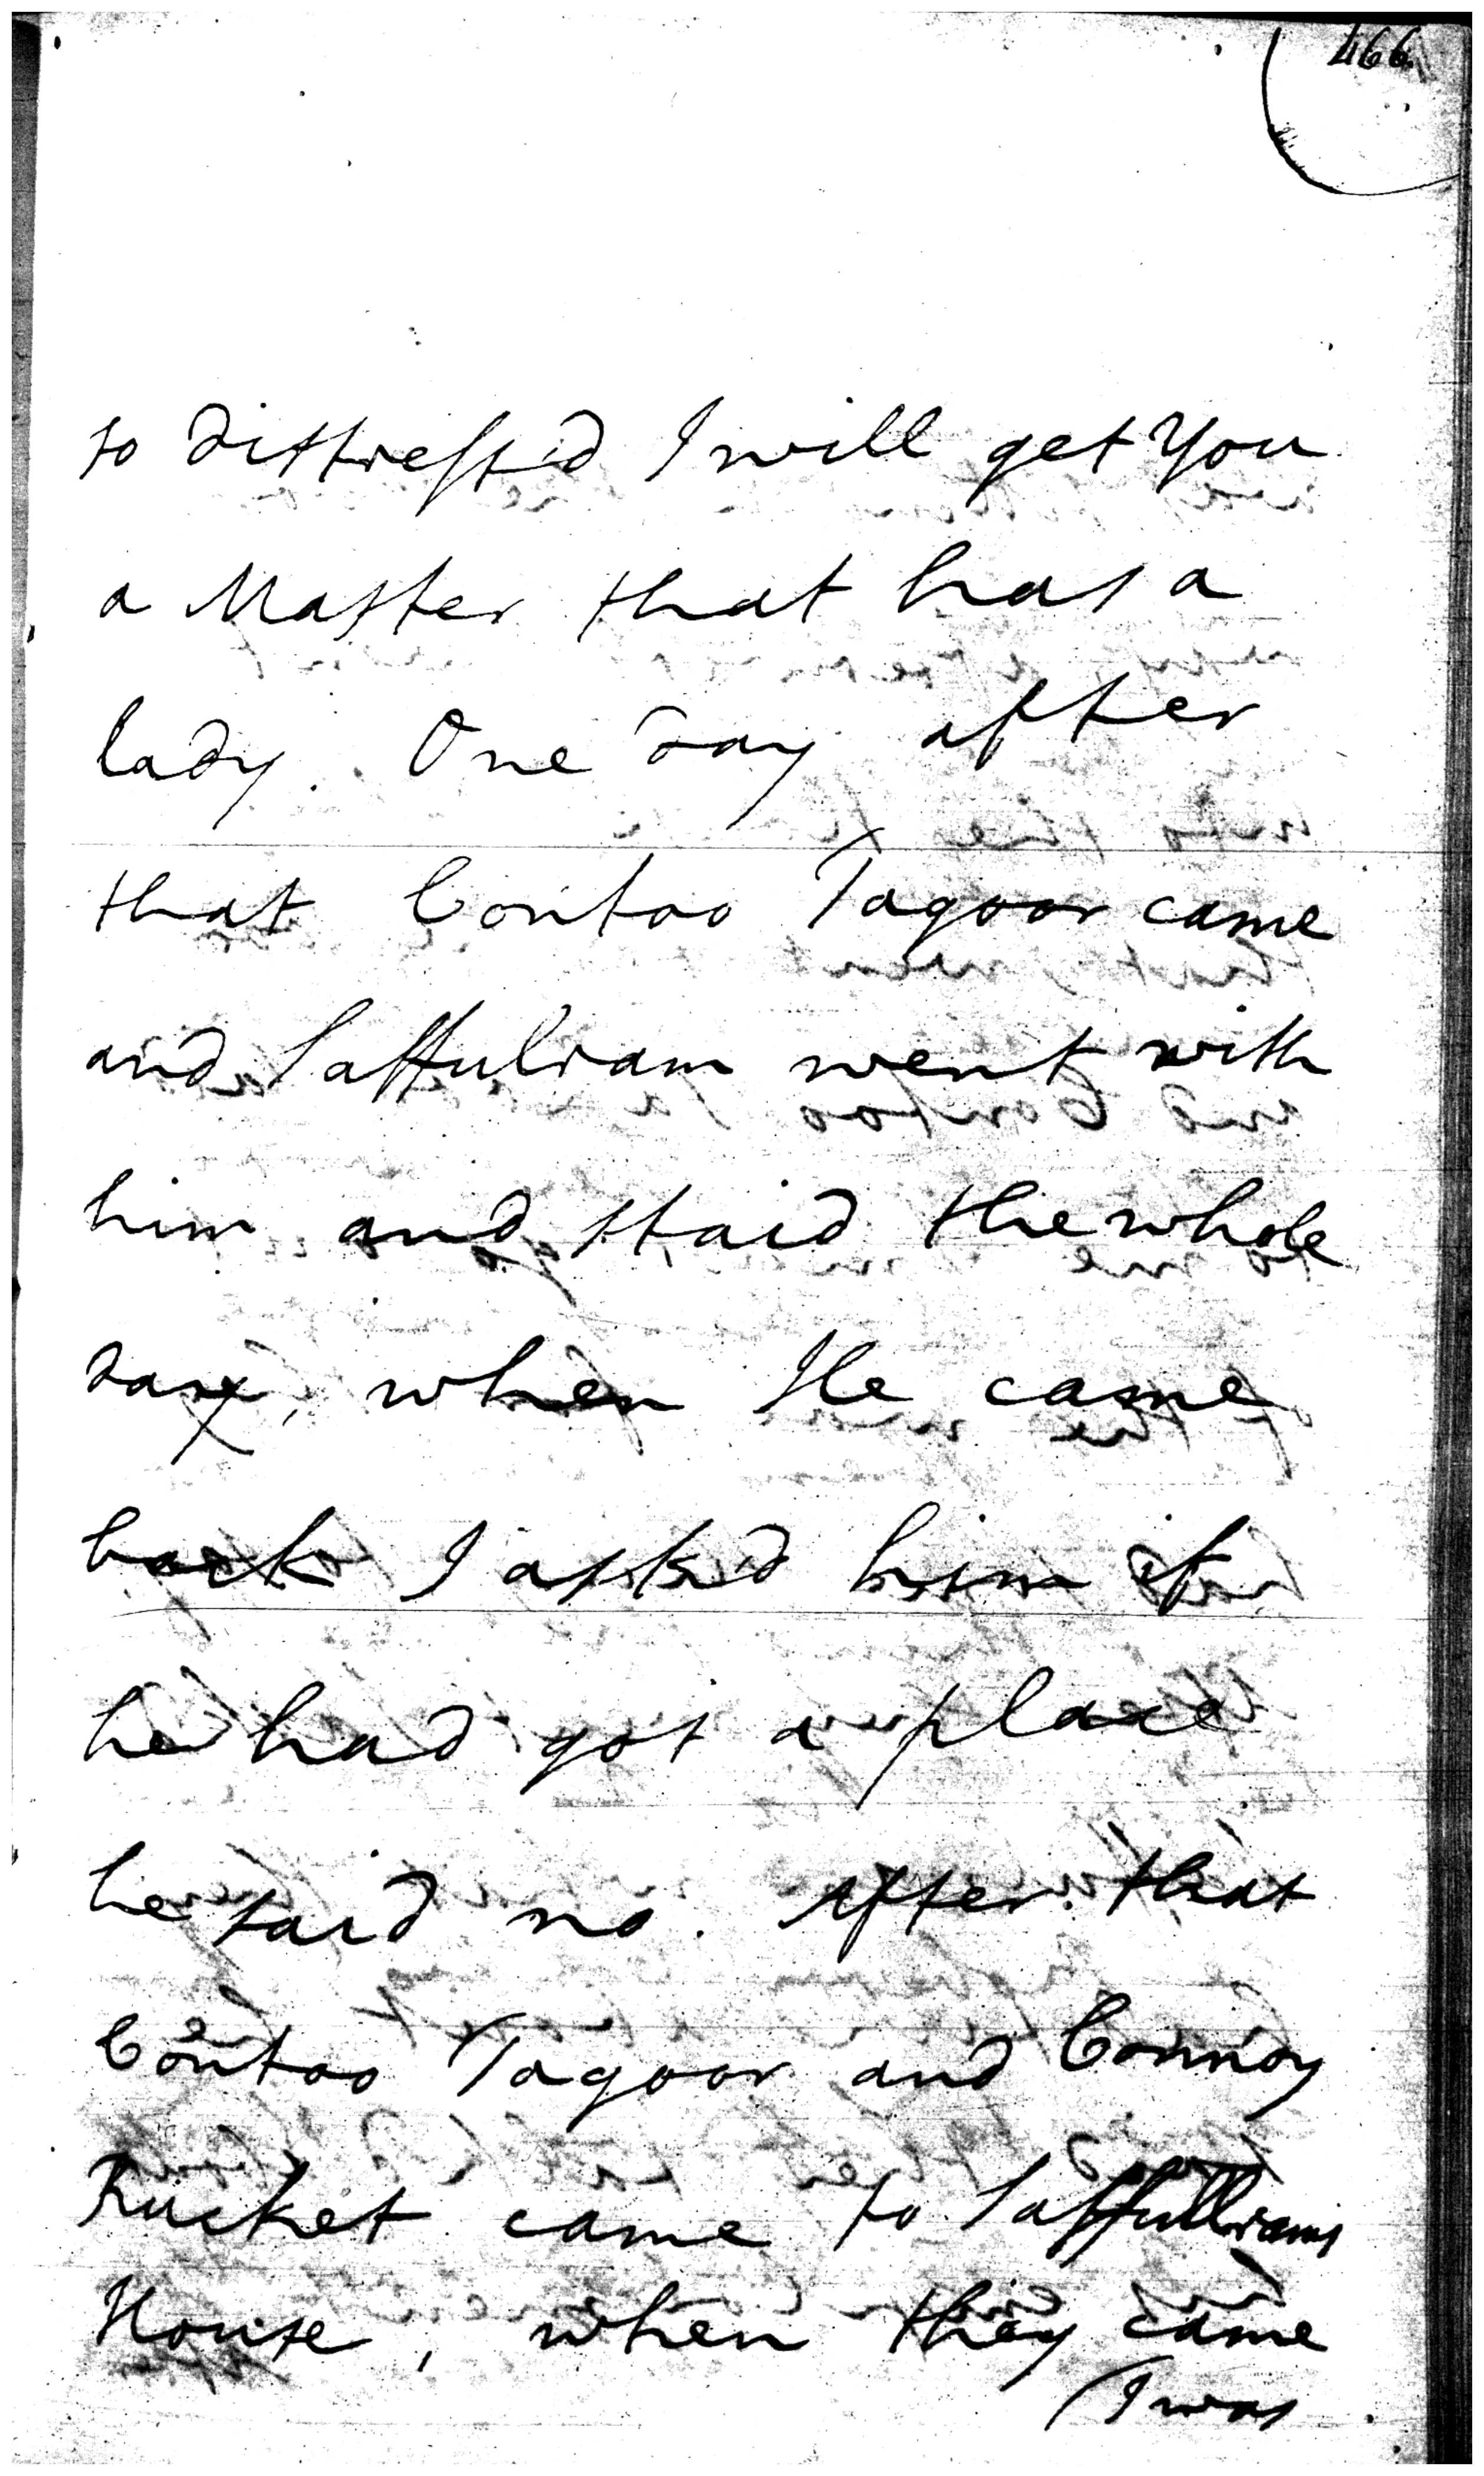 466
so distress'd I will get You
a Master that has a
lady. One day after
that Contoo Tagoor came
and Saffulram went with
him and staid the whole
day, when He came
back I ask'd him if
he had got a place
he said no. After that
Contoo Tagoor and Connoy
Rucket came to Saffullrams
House, when they came
I was